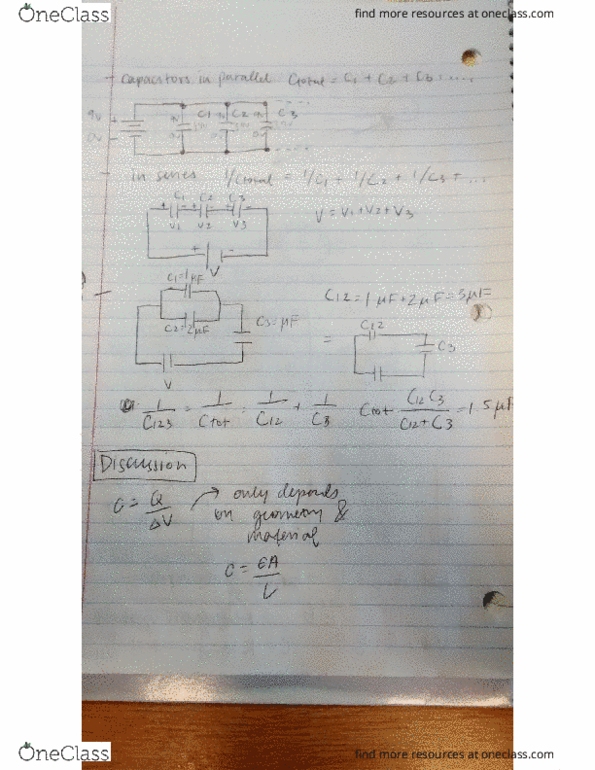 OneClass
find more resources at oneclass.com
capacitors in parallel Ctotal = C1 + C2 + C3 + ....
9V + C1 C2 C3
0V
in series 1/Ctotal = 1/C1 + 1/C2 + 1/C3 + ...
C1 C2 C3
+ - + - + -
V1 V2 V3
V = V1+V2+V3
+ -
V
C1=1μF
C12 = 1μF+2μF=3μF
C2=2μF C3=μF
= C12
C3
V
1/C123 = 1/Ctot = 1/C12 + 1/C3 Ctot C12C3/C12+C3 = 1.5μF
Discussion
C = Q/ΔV → only depends
on geometry &
material
C = ϵA/L
OneClass
find more resources at oneclass.com